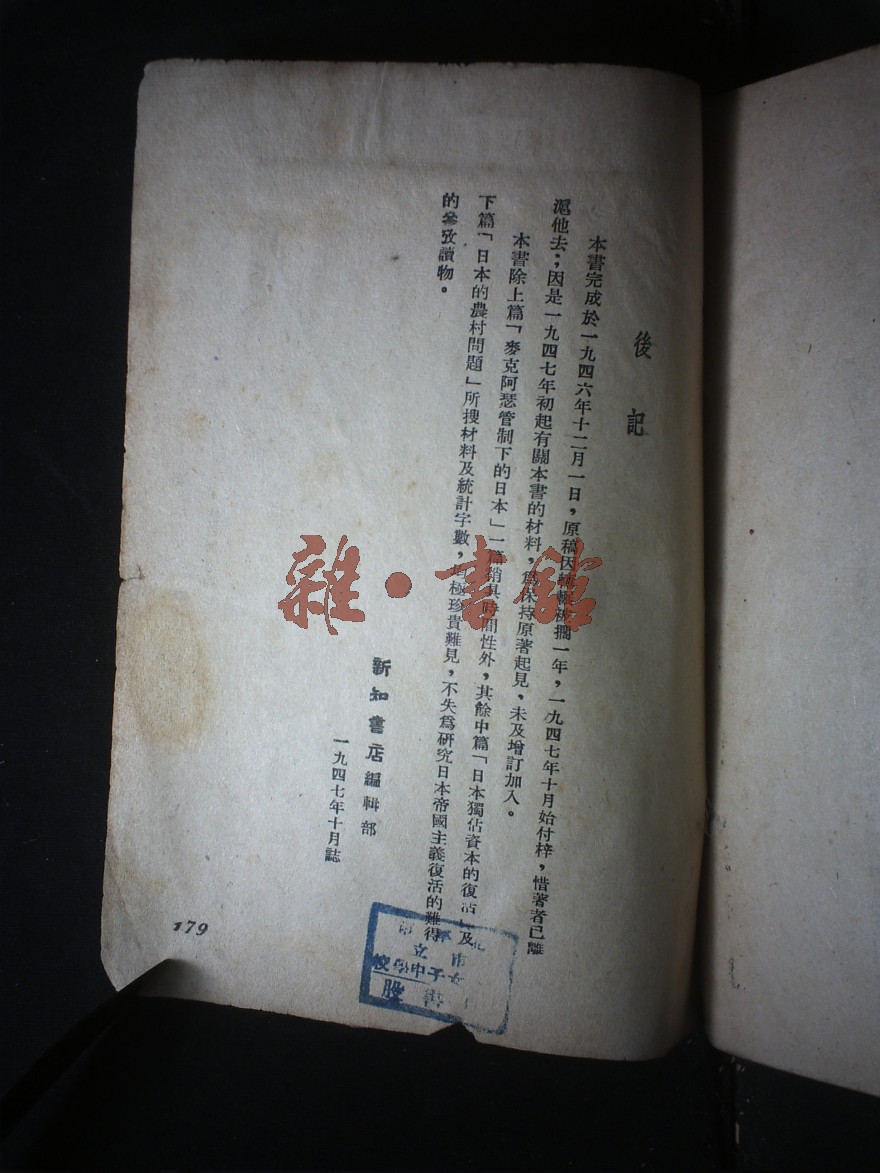 後記
本書完成於一九四六年十二月一日，原稿因輾轉被擱一年，一九四七年十月始付梓，惜著者已離
滬他去；因是一九四七年初起有關本書的材料，爲保持原著起見，未及增訂加入。
本書除上篇「麥克阿瑟管制下的日本」一篇稍具時間性外，其餘中篇「日本獨佔資本的復活」及
下篇「日本的農村問題」所搜材料及統計字數，極珍貴難見，不失爲研究日本帝國主義復活的難得
的參攷讀物。
新知書店編輯部
一九四七年十月誌
179
雜·書館